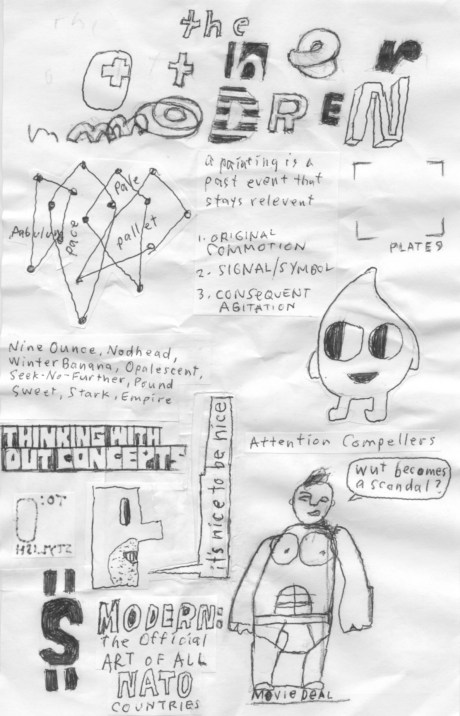 the
other
MODREN
Pabulum
pace
pale
pallet
a painting is a
past event that
stays relevent
1. ORIGINAL
COMMOTION
2. SIGNAL/SYMBOL
3. CONSEQUENT
AGITATION
PLATE 9
Nine Ounce, Nodhead,
Winter Banana, Opalescent,
Seek-No-Further, Pound
Sweet, Stark, Empire
Attention Compellers
THINKING WITH
OUT CONCEPTS
it's nice to be nice
wut becomes
a scandal?
"S"
MODERN:
the Official
ART OF ALL
NATO
COUNTRIES
MOVIE DEAL